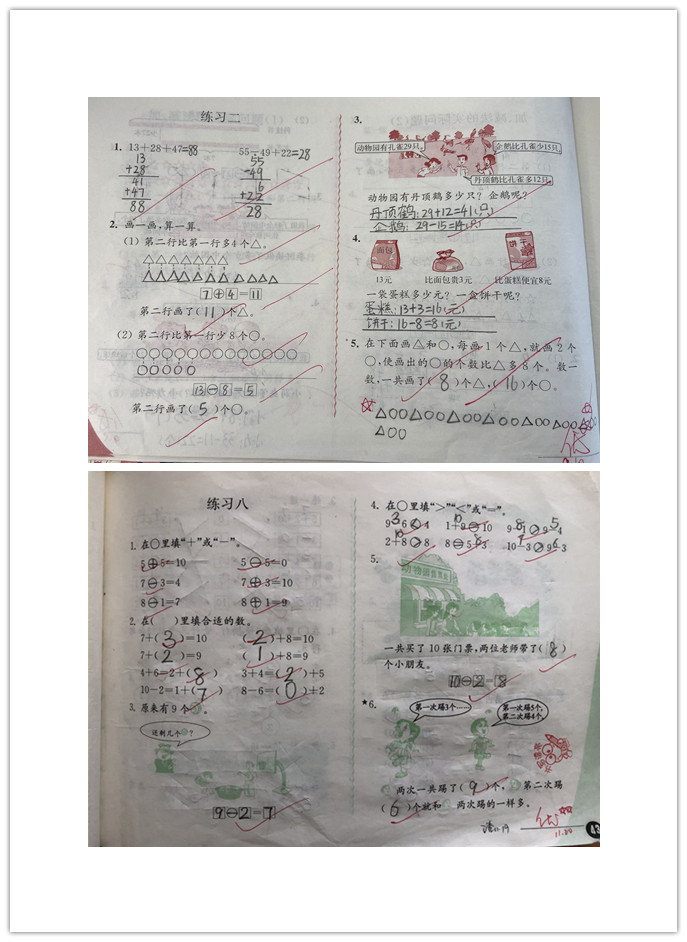 练习二
1. 13+28+47=88 55-49+22=28
13
+28
41
+47
88
55
-49
6
+22
28
2. 画一画,算一算。
(1) 第二行比第一行多4个△。
7+4=11
第二行画了(11)个△。
(2) 第二行比第一行少8个○。
13-8=5
第二行画了(5)个○。
3.
动物园有孔雀29只。
企鹅比孔雀少15只。
丹顶鹤比孔雀多12只。
动物园有丹顶鹤多少只?企鹅呢?
丹顶鹤:29+12=41(只)
企鹅:29-15=14(只)
4.
面包
饼干
13元 比面包贵3元 比蛋糕便宜8元
一袋蛋糕多少元?一盒饼干呢?
蛋糕:13+3=16(元)
饼干:16-8=8(元)
*5. 在下面画△和○,每画1个△,就画2个
○,使画出的○的个数比△多8个。数一
数,一共画了(8)个△,(16)个○。
△○○△○○△○○△○○△○○△○○△○○
△○○
优
练习八
1. 在○里填“+”或“-”。
5+5=10 5-5=0
7-3=4 7+3=10
8-1=7 8+1=9
2. 在( )里填合适的数。
7+(3)=10 (2)+8=10
7+(2)=9 (1)+8=9
4+6=2+(8) 3+4=(2)+5
10-2=1+(7) 8-6=(0)+2
3. 原来有9个
还剩几个?
9-2=7
4. 在○里填“>”“<”或“=”。
9-6<4 1+9=10 9-1>9-4
2+8>8 8=5+3 10-3>9-3
5.
动物园售票处
一共买了10张门票,两位老师带了(8)
个小朋友。
10-2=8
★6.
第一次踢3个……
第一次踢5个,
第二次踢4个。
两次一共踢了(9)个, 第二次踢
(6)个就和 两次踢的一样多。
优
11.20
43